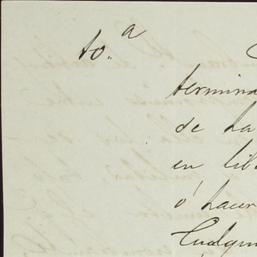 to.ª
termina
de la
en lib
ó hacer
Cualqui